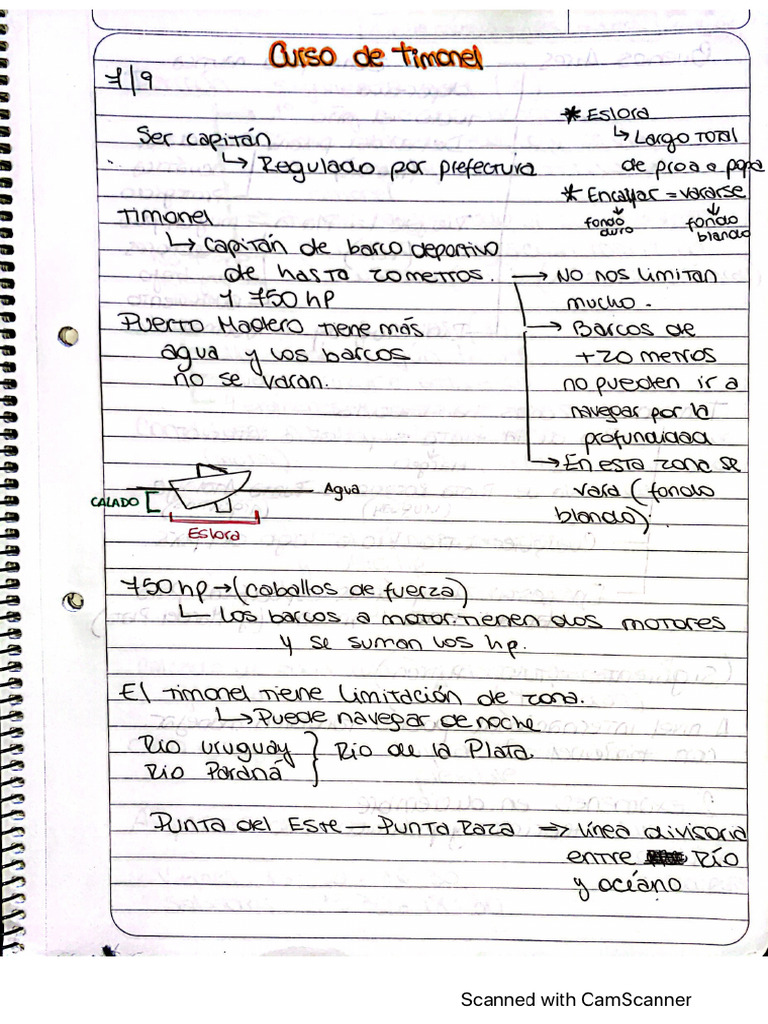 Curso de Timonel
7/9
* Eslora
↳ Largo Total
de proa a popa
* Encallar = vararse
fondo duro
fondo blando
Ser capitán
↳ Regulado por prefectura
Timonel
↳ Capitán de barco deportivo
de hasta 20 metros.
y 750 hp
→ No nos limitan
mucho.
→ Barcos de
+20 metros
no pueden ir a
navegar por la
profundidad
→ En esta zona se
vara (fondo
blando).
Puerto Madero tiene más
agua y los barcos
no se varan.
Agua
CALADO
Eslora
750 hp → (caballos de fuerza)
↳ Los barcos a motor tienen dos motores
y se suman los hp.
El timonel tiene limitación de zona.
↳ Puede navegar de noche
Río Uruguay } Río de la Plata.
Río Paraná
Punta del Este — Punta Raza ⇒ línea divisoria
entre Río
y océano
Scanned with CamScanner